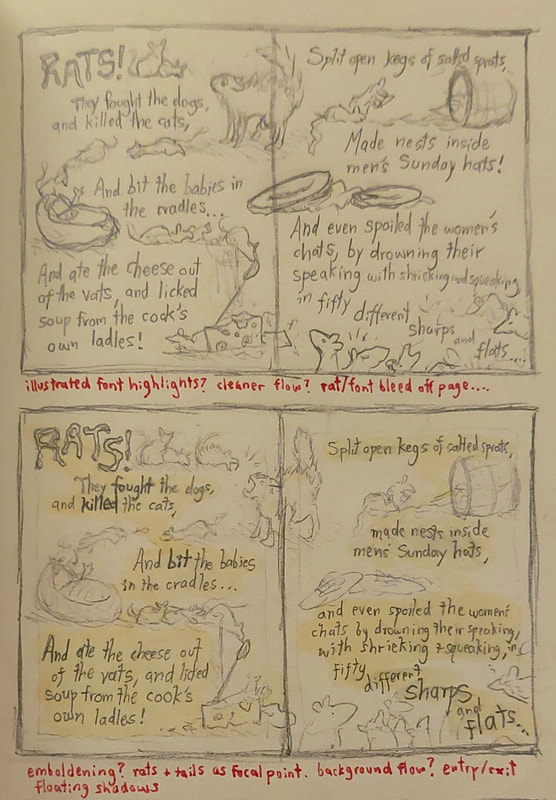 RATS!
They fought the dogs,
and killed the cats,
And bit the babies in
the cradles...
And ate the cheese out
of the vats, and licked
soup from the cook's
own ladles!
Split open kegs of salted sprats,
Made nests inside
men's Sunday hats!
And even spoiled the women's
chats, by drowning their
speaking with shrieking and squeaking
in fifty different
sharps
and
flats....
illustrated font highlights? cleaner flow? rat/font bleed off page....
RATS!
They fought the dogs,
and killed the cats,
And bit the babies
in the cradles...
And ate the cheese out
of the vats, and licked
soup from the cook's
own ladles!
Split open kegs of salted sprats,
made nests inside
mens' Sunday hats,
and even spoiled the women's
chats by drowning their speaking,
with shrieking + squeaking, in
fifty
different
sharps
and
flats...
emboldening? rats + tails as focal point. background flow? entry/exit
floating shadows